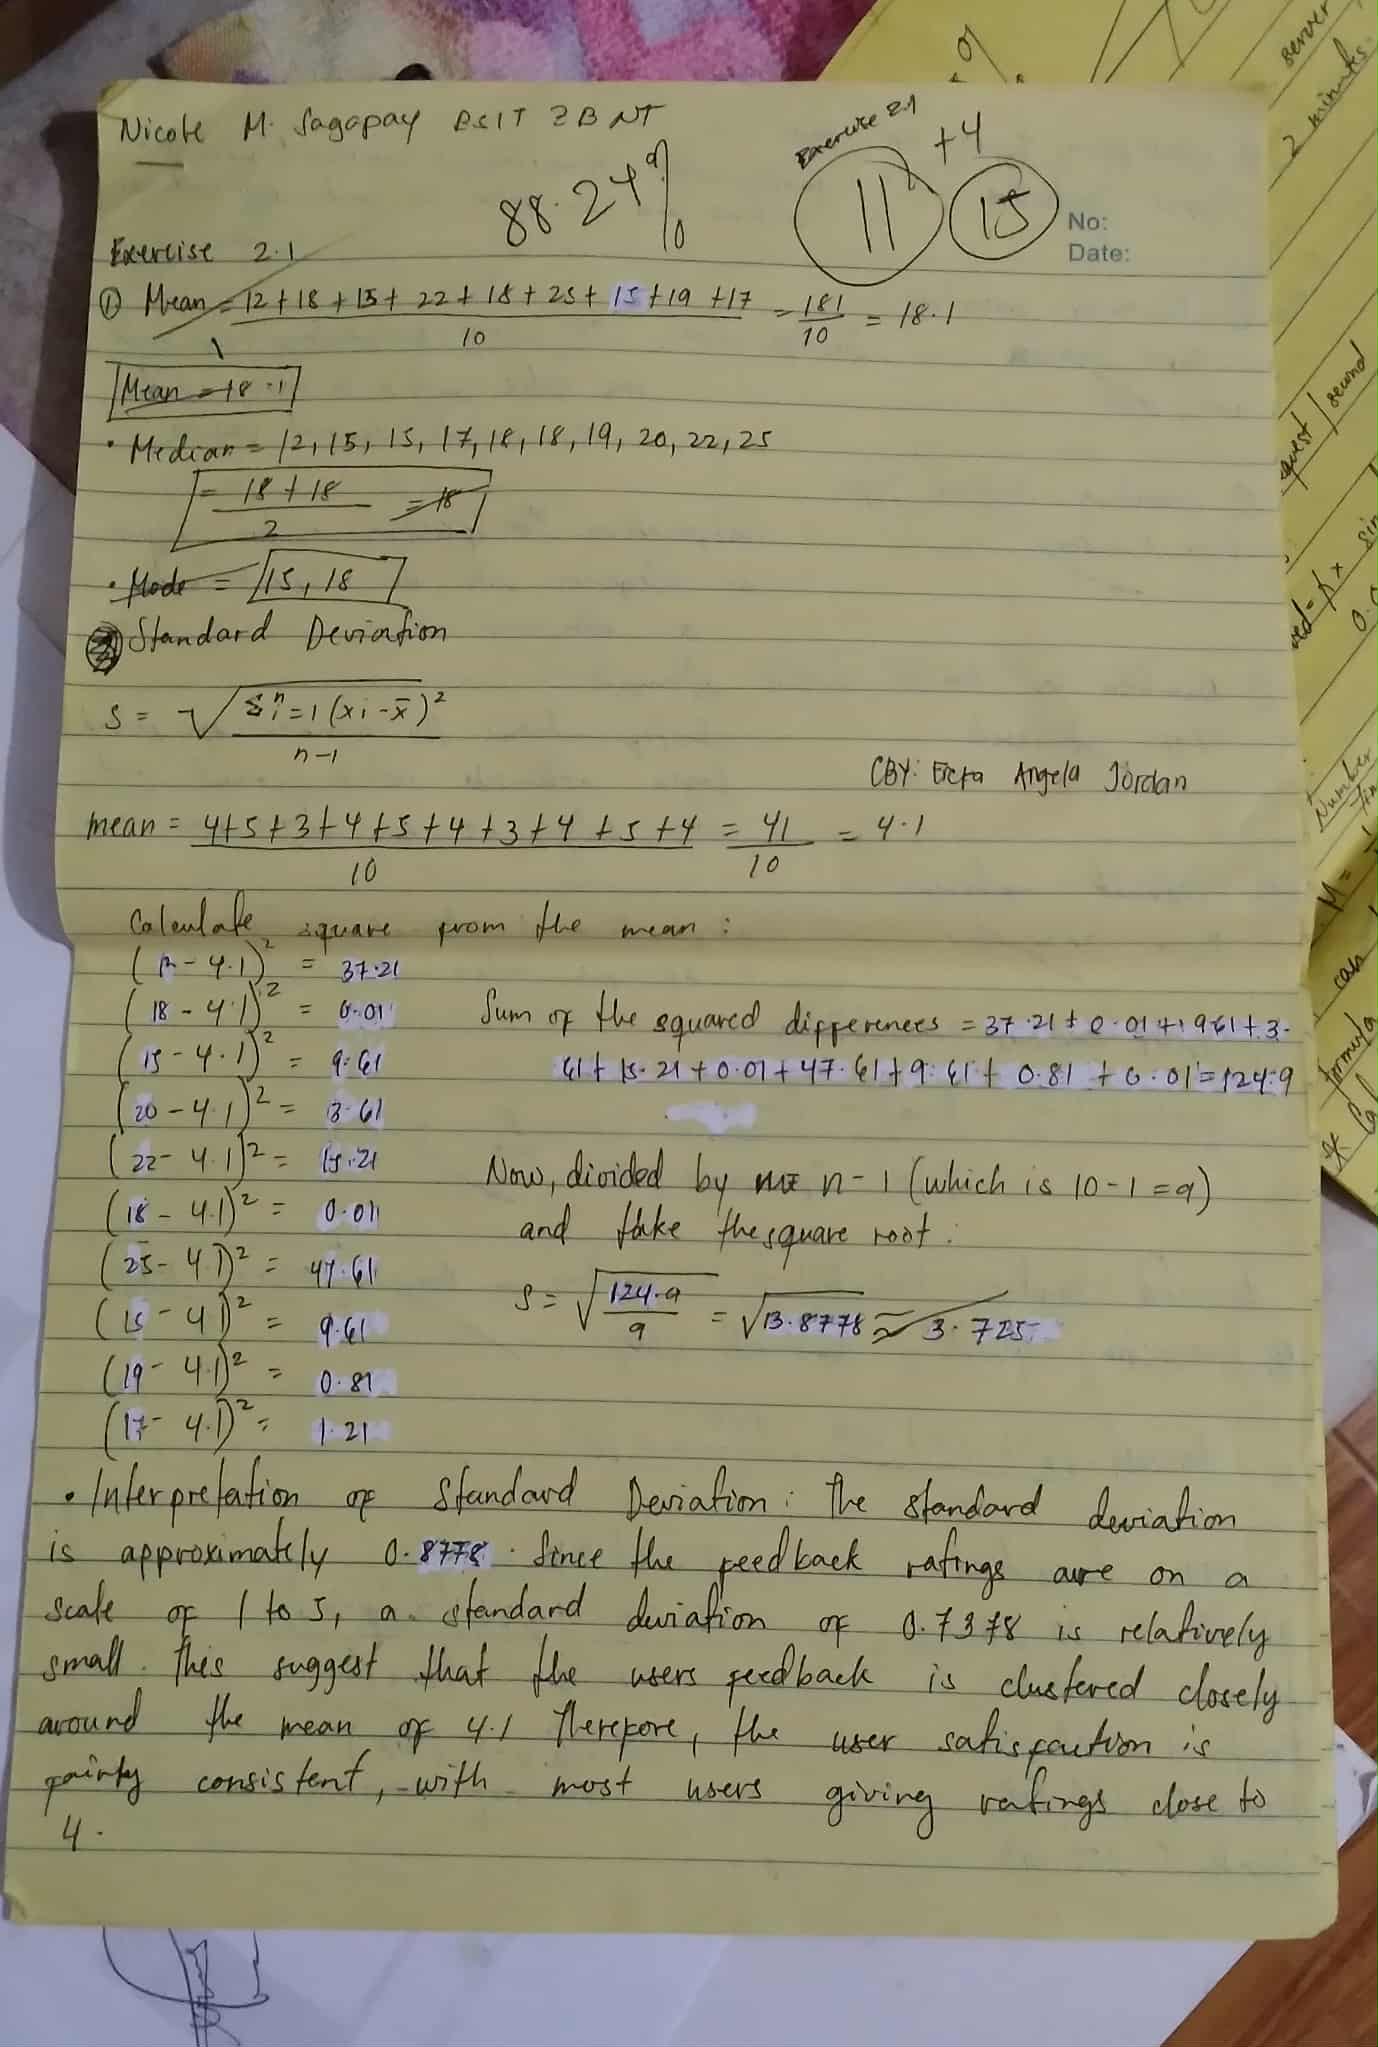 Nicole M. Sagapay BSIT 2B NT
Exercise 2.1
+4
88.24%
11
15
No:
Date:
Exercise 2.1
① Mean = 12 + 18 + 15 + 22 + 18 + 25 + 15 + 19 + 17 = 181 = 18.1
10 10
Mean = 18.1
• Median = 12, 15, 15, 17, 18, 18, 19, 20, 22, 25
= 18 + 18 = 18
2
• Mode = 15, 18
Standard Deviation
s = √ Σⁿi=1 (xi - x̄)²
n-1
CBY: Angela Jordan
mean = 4+5+3+4+5+4+3+4+5+4 = 41 = 4.1
10 10
Calculate square from the mean :
(12 - 4.1)² = 37.21
(18 - 4.1)² = 0.01
(15 - 4.1)² = 9.61
(20 - 4.1)² = 3.61
(22 - 4.1)² = 15.21
(18 - 4.1)² = 0.01
(25 - 4.1)² = 47.61
(15 - 4.1)² = 9.61
(19 - 4.1)² = 0.81
(17 - 4.1)² = 1.21
Sum of the squared differences = 37.21 + 0.01 + 9.61 + 3.
61 + 15.21 + 0.01 + 47.61 + 9.61 + 0.81 + 0.01 = 124.9
Now, divided by n - 1 (which is 10 - 1 = 9)
and take the square root.
s = √ 124.9 = √13.8778 ≈ 3.725
9
• Interpretation of Standard Deviation : The standard deviation
is approximately 0.8778. Since the feedback ratings are on a
scale of 1 to 5, a standard deviation of 0.7378 is relatively
small. This suggest that the users feedback is clustered closely
around the mean of 4.1 Therefore, the user satisfaction is
fairly consistent, with most users giving ratings close to
4.
server
2 minutes
second
Number
M =
can
formula